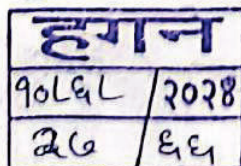 हगन
१०८६८ / २०२४
२७ / ६६